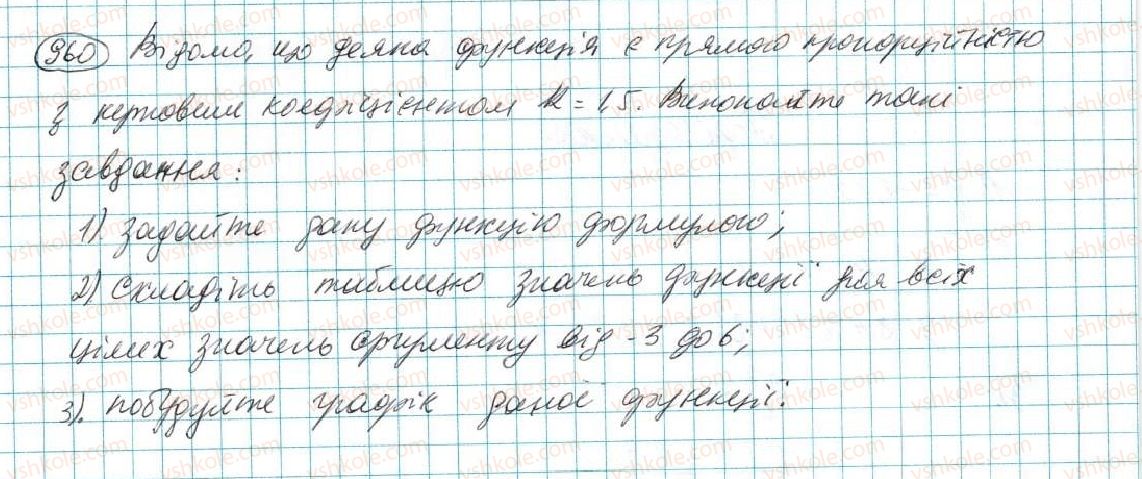 960 Відомо, що деяка функція є прямою пропорційністю
з кутовим коефіцієнтом k = 1,5. Виконайте такі
завдання:
1). задайте дану функцію формулою;
2) складіть таблицю значень функції для всіх
цілих значень аргументу від -3 до 6;
3). побудуйте графік даної функції.
vshkole.com